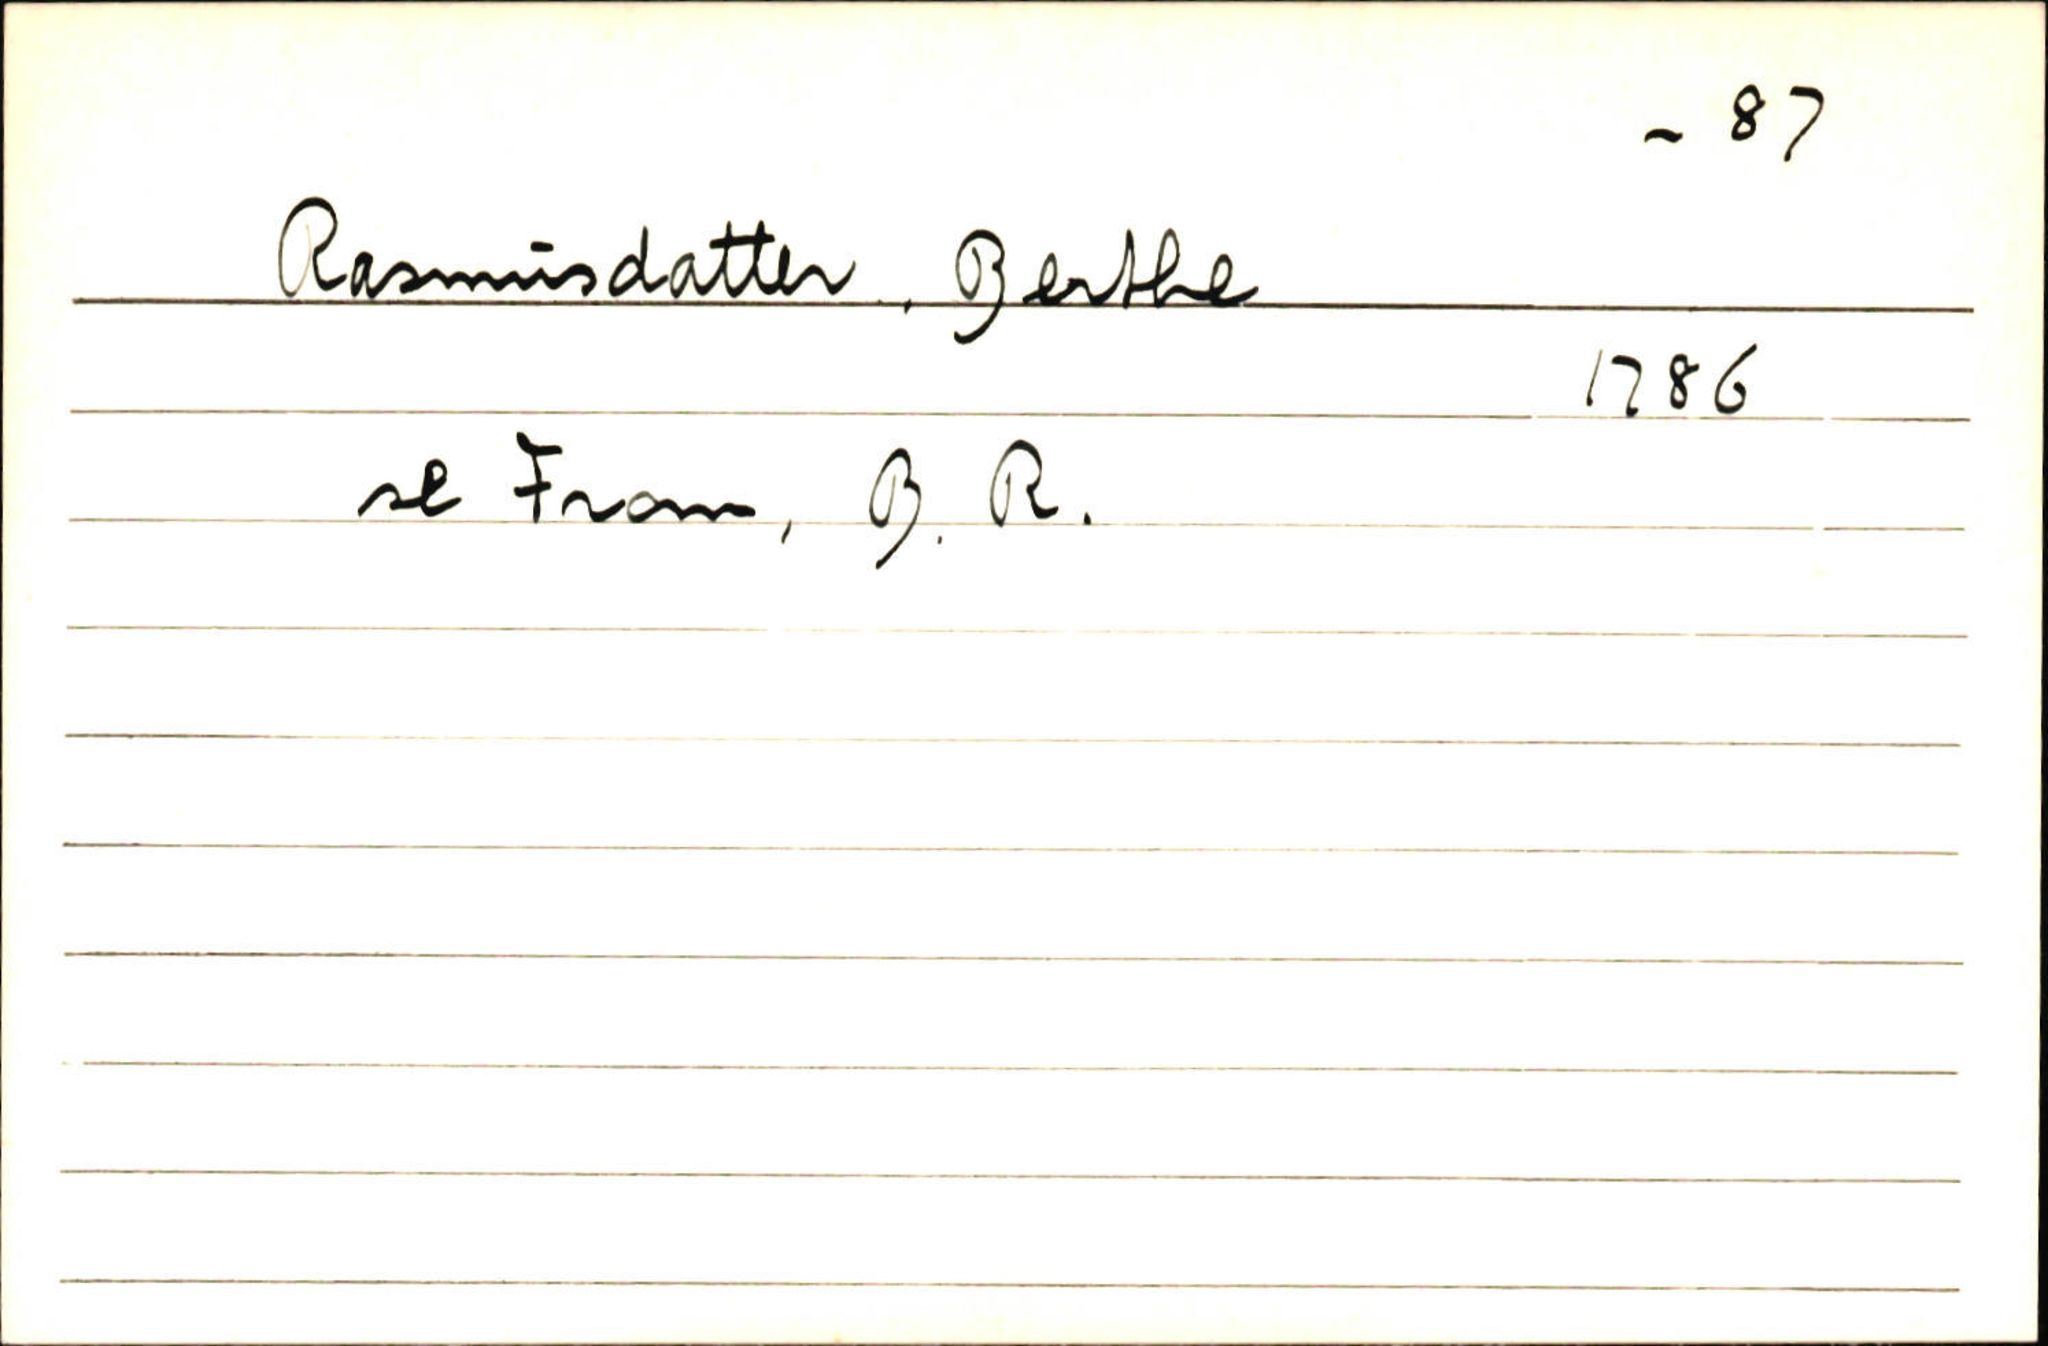 ~ 87
Rasmusdatter, Berthe
1786
se From, B. R.